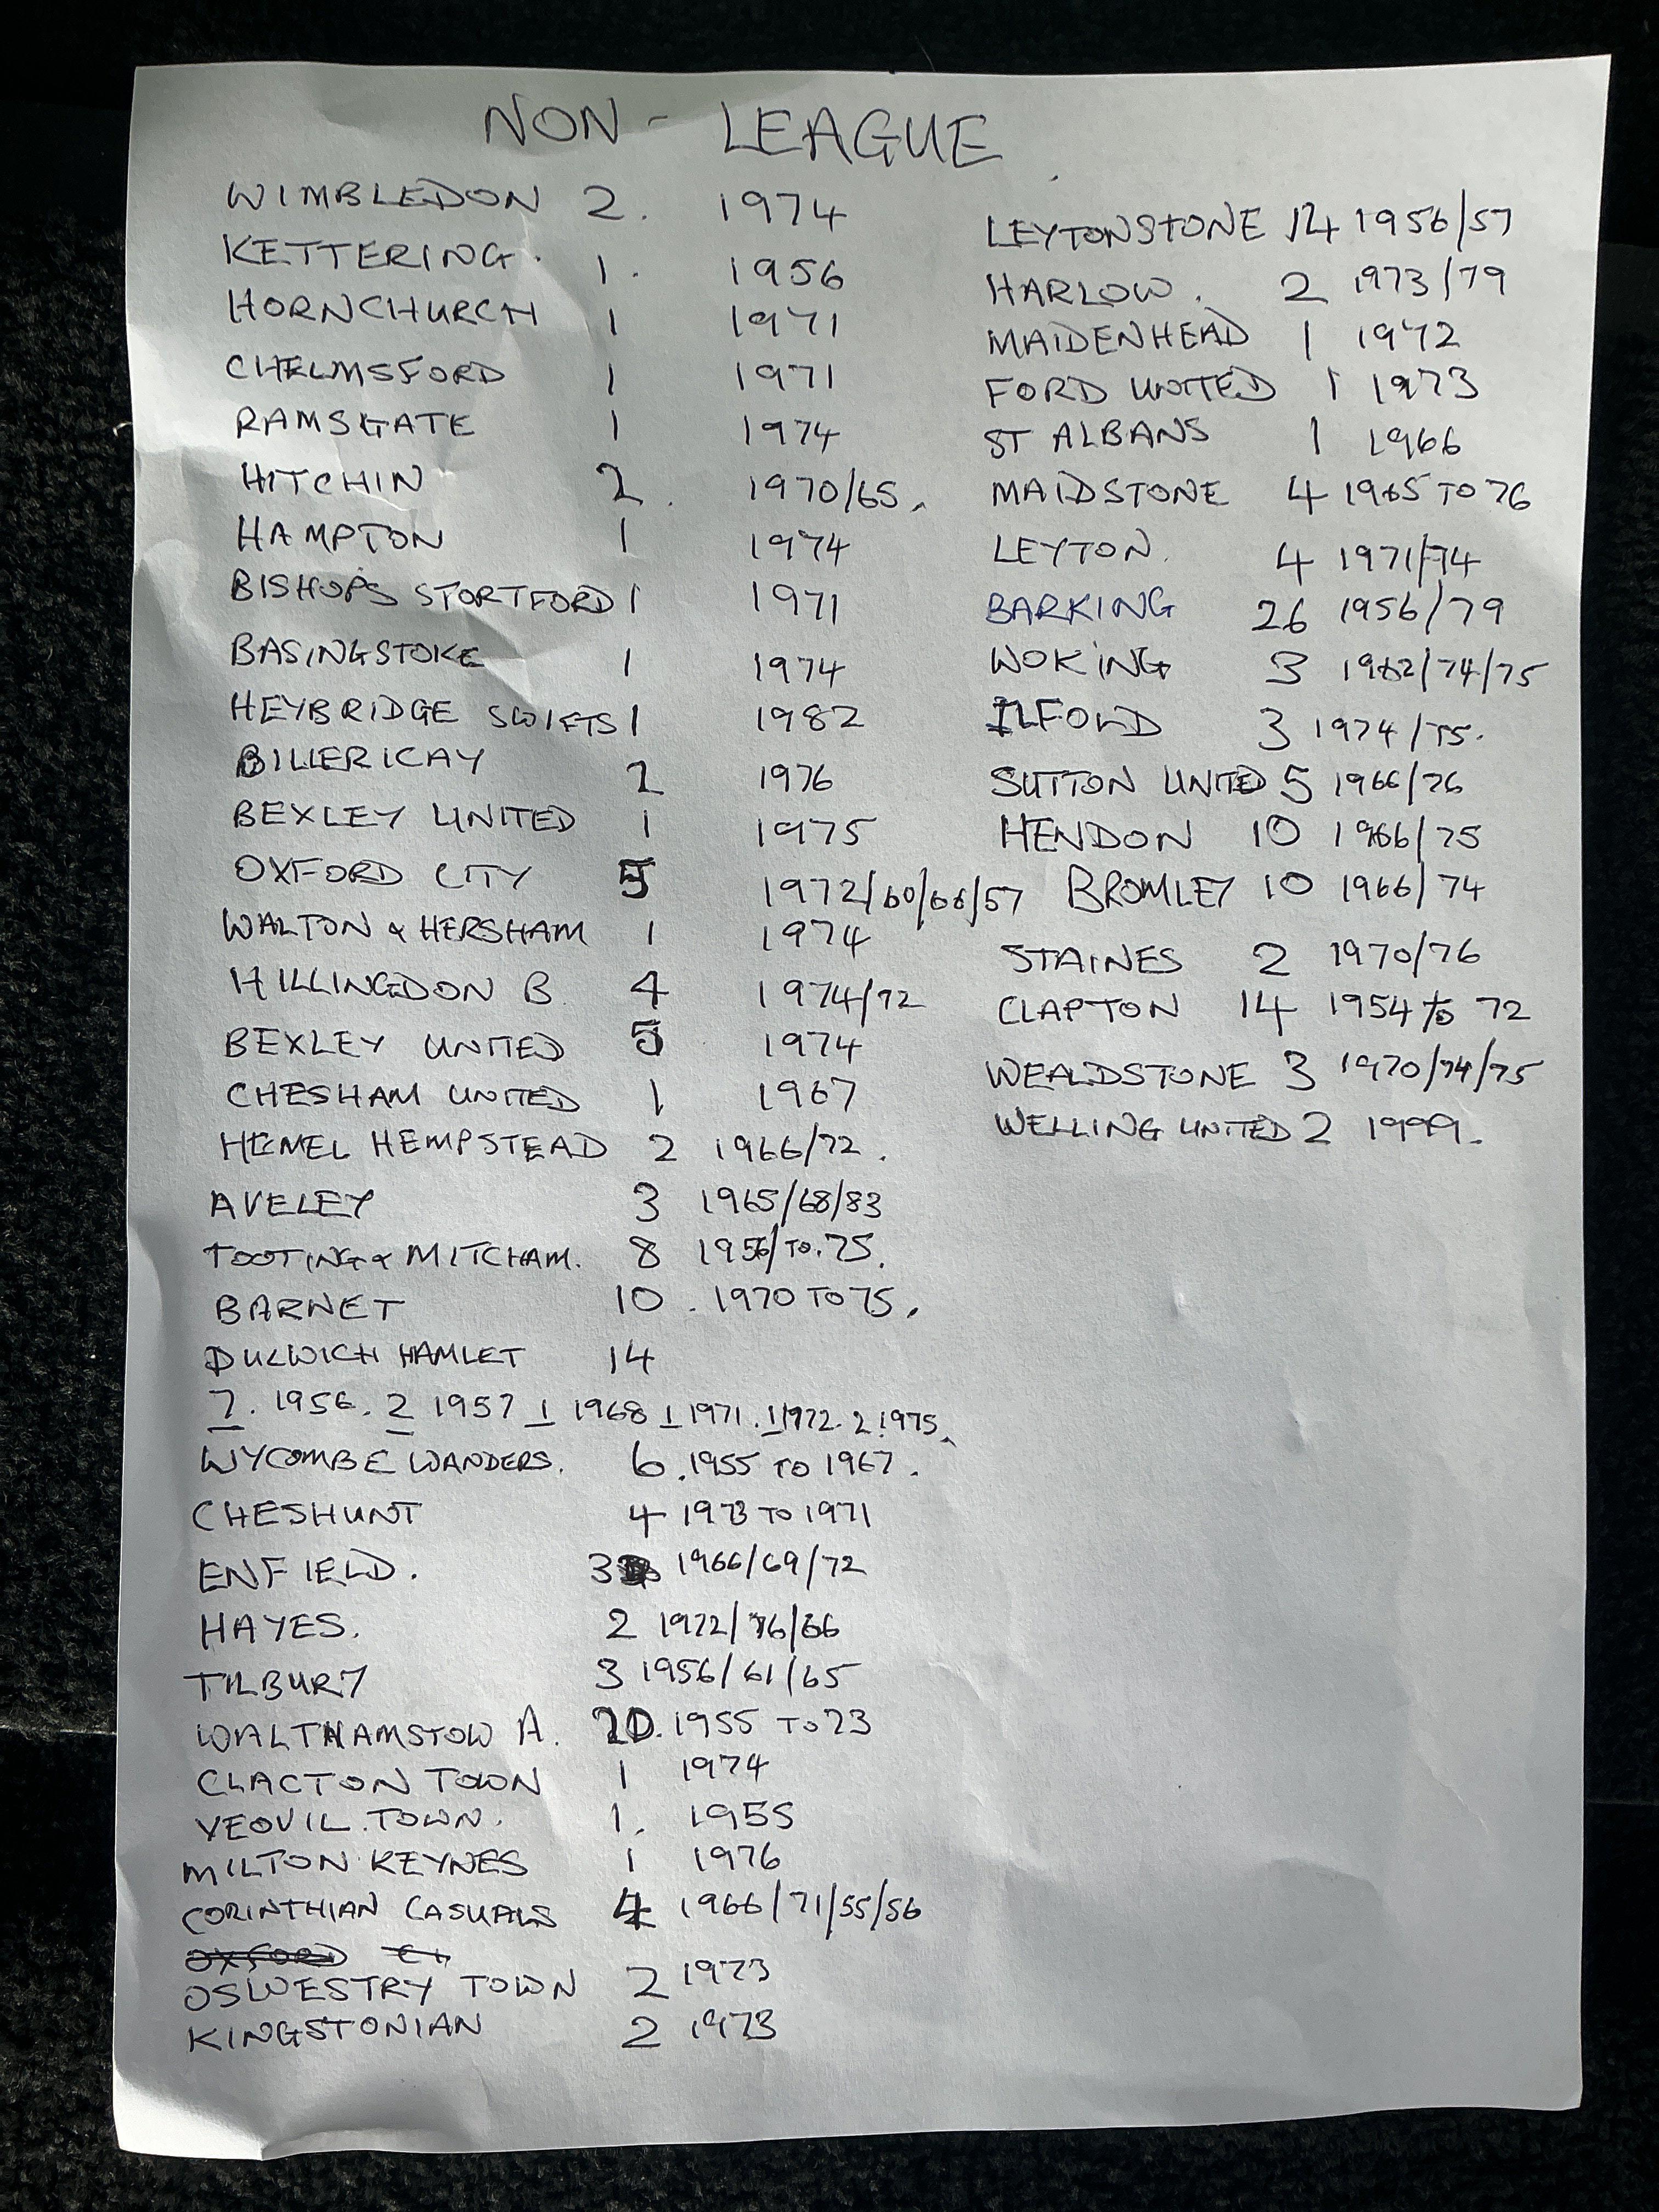 NON - LEAGUE
WIMBLEDON 2. 1974
KETTERING. 1. 1956
HORNCHURCH 1 1971
CHELMSFORD 1 1971
RAMSGATE 1 1974
HITCHIN 2. 1970/65.
HAMPTON 1 1974
BISHOPS STORTFORD 1 1971
BASINGSTOKE 1 1974
HEYBRIDGE SWIFTS 1 1982
BILLERICAY 2 1976
BEXLEY UNITED 1 1975
OXFORD CITY 5 1972/60/66/57
WALTON & HERSHAM 1 1974
HILLINGDON B. 4 1974/72
BEXLEY UNITED 5 1974
CHESHAM UNITED 1 1967
HEMEL HEMPSTEAD 2 1966/72.
AVELEY 3 1965/68/83
TOOTING & MITCHAM. 8 1956/TO.75.
BARNET 10. 1970 TO 75.
DULWICH HAMLET 14
7. 1956. 2 1957 1 1968 1 1971. 1 1972. 2 1975.
WYCOMBE WANDERS. 6. 1955 TO 1967.
CHESHUNT 4 1973 TO 1971
ENFIELD. 3 1966/69/72
HAYES. 2 1972/76/66
TILBURY 3 1956/61/65
WALTHAMSTOW A. 20. 1955 TO 73
CLACTON TOWN 1 1974
YEOVIL. TOWN. 1. 1955
MILTON KEYNES 1 1976
CORINTHIAN CASUALS 4 1966/71/55/56
OXFORD Ci
OSWESTRY TOWN 2 1973
KINGSTONIAN 2 1973
LEYTONSTONE 14 1956/57
HARLOW. 2 1973/79
MAIDENHEAD 1 1972
FORD UNITED 1 1973
ST ALBANS 1 1966
MAIDSTONE 4 1965 TO 76
LEYTON. 4 1971/74
BARKING 26 1956/79
WOKING 3 1962/74/75
ILFOLD 3 1974/75.
SUTTON UNITED 5 1966/76
HENDON 10 1966/75
BROMLEY 10 1966/74
STAINES 2 1970/76
CLAPTON 14 1954 to 72
WEALDSTONE 3 1970/74/75
WELLING UNITED 2 1999.